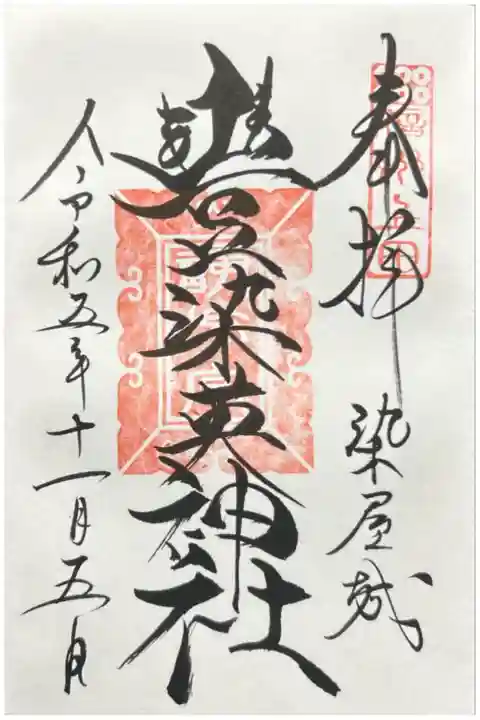 奉拝 染屋城
豊染英神社
令和五年十一月五日